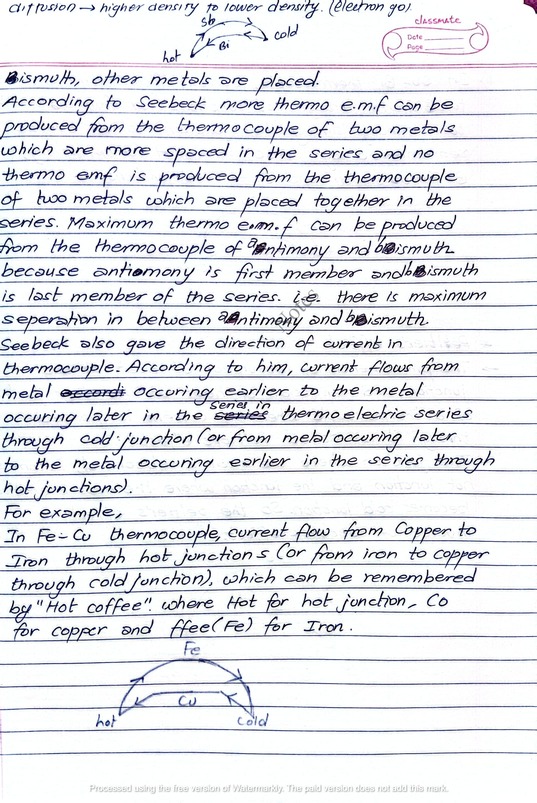 diffusion → higher density to lower density. (electron go)
Sb
Bi
hot
cold
classmate
Date
Page
Bismuth, other metals are placed.
According to Seebeck more thermo e.m.f can be
produced from the thermocouple of two metals
which are more spaced in the series and no
thermo emf is produced from the thermocouple
of two metals which are placed together in the
series. Maximum thermo e.m.f can be produced
from the thermocouple of antimony and bismuth
because antiomony is first member and bismuth
is last member of the series. i.e. there is maximum
seperation in between antimony and bismuth.
Seebeck also gave the direction of current in
thermocouple. According to him, current flows from
metal occuring earlier to the metal
occuring later in the series in thermoelectric series
through cold junction (or from metal occuring later
to the metal occuring earlier in the series through
hot junctions).
For example,
In Fe-Cu thermocouple, current flow from Copper to
Iron through hot junctions (or from iron to copper
through cold junction), which can be remembered
by "Hot coffee". where Hot for hot junction, Co
for copper and ffee (Fe) for Iron.
Fe
Cu
hot
cold
Processed using the free version of Watermarkly. The paid version does not add this mark.